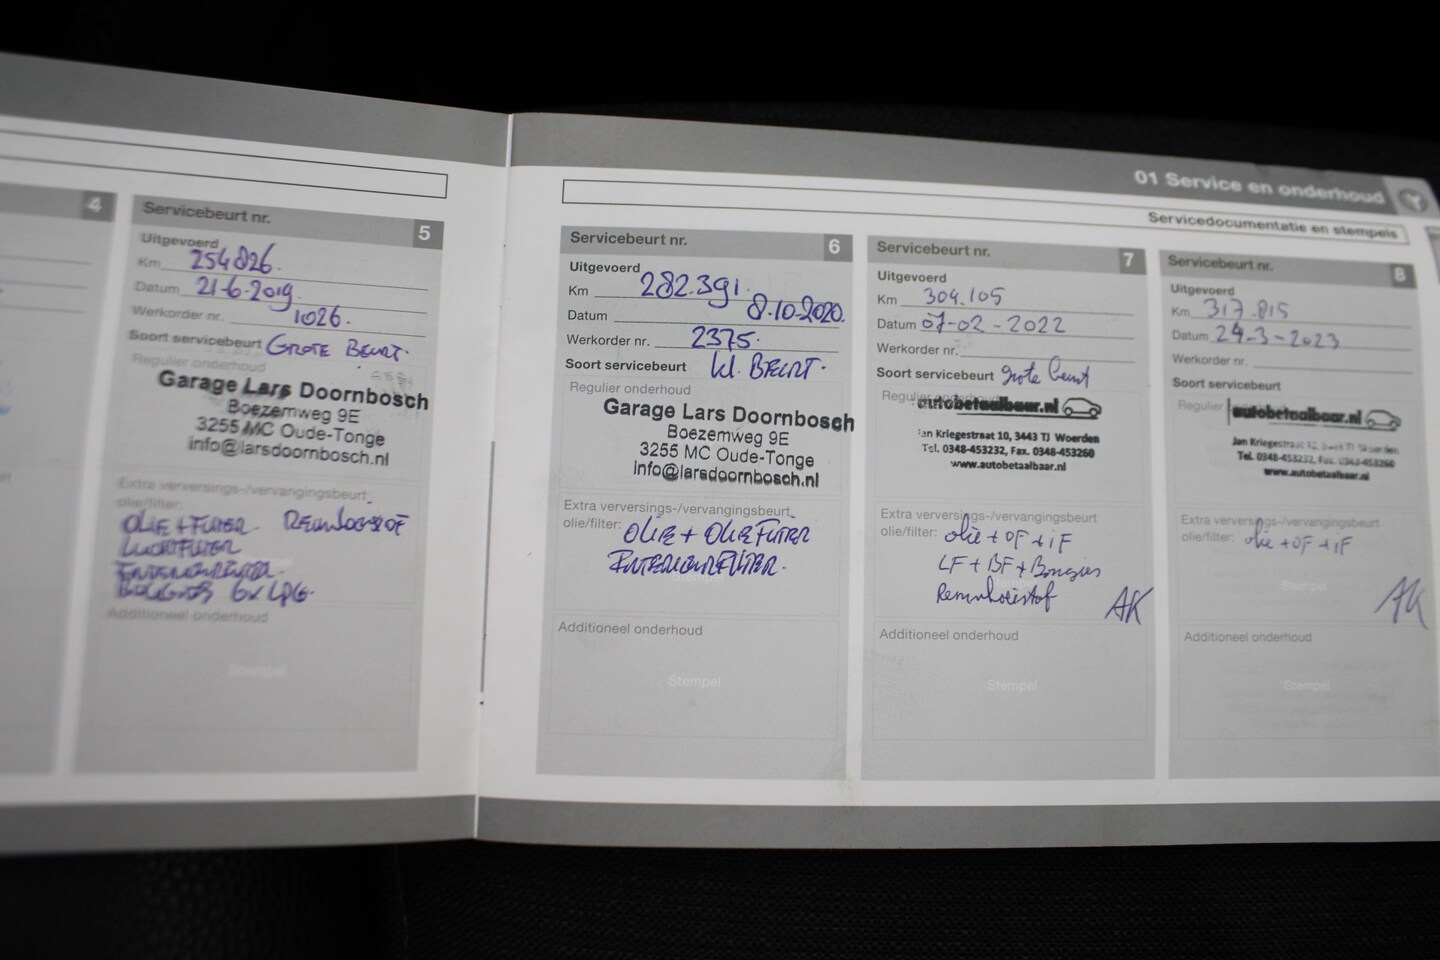 01 Service en onderhoud
Servicedocumentatie en stempels
4
Servicebeurt nr. 5
Uitgevoerd
Km 254826.
Datum 21-6-2019
Werkorder nr. 1026.
Soort servicebeurt GROTE BEURT.
Regulier onderhoud
Garage Lars Doornbosch
Boezemweg 9E
3255 MC Oude-Tonge
info@larsdoornbosch.nl
Extra verversings-/vervangingsbeurt
olie/filter:
OLIE + FILTER REMVLOEISTOF
LUCHTFILTER
INTERIEURFILTER.
BOUGIES 6x LPG.
Additioneel onderhoud
Stempel
Servicebeurt nr. 6
Uitgevoerd
Km 282.391.
Datum 8-10-2020.
Werkorder nr. 2375.
Soort servicebeurt Kl. BEURT.
Regulier onderhoud
Garage Lars Doornbosch
Boezemweg 9E
3255 MC Oude-Tonge
info@larsdoornbosch.nl
Extra verversings-/vervangingsbeurt
olie/filter: OLIE + OLIEFILTER
INTERIEURFILTER.
Stempel
Additioneel onderhoud
Stempel
Servicebeurt nr. 7
Uitgevoerd
Km 304.105
Datum 07-02-2022
Werkorder nr.
Soort servicebeurt grote beurt
Regulier onderhoud
autobetaalbaar.nl
Jan Kriegestraat 10, 3443 TJ Woerden
Tel. 0348-453232, Fax. 0348-453260
www.autobetaalbaar.nl
Extra verversings-/vervangingsbeurt
olie/filter: olie + OF + iF
LF + BF + Bougies
Remvloeistof AK
Additioneel onderhoud
Stempel
Servicebeurt nr. 8
Uitgevoerd
Km 317.815
Datum 24-3-2023
Werkorder nr.
Soort servicebeurt
Regulier
autobetaalbaar.nl
Jan Kriegestraat 10, 3443 TJ Woerden
Tel. 0348-453232, Fax. 0348-453260
www.autobetaalbaar.nl
Extra verversings-/vervangingsbeurt
olie/filter: olie + OF + iF
Stempel
AK
Additioneel onderhoud
Stempel